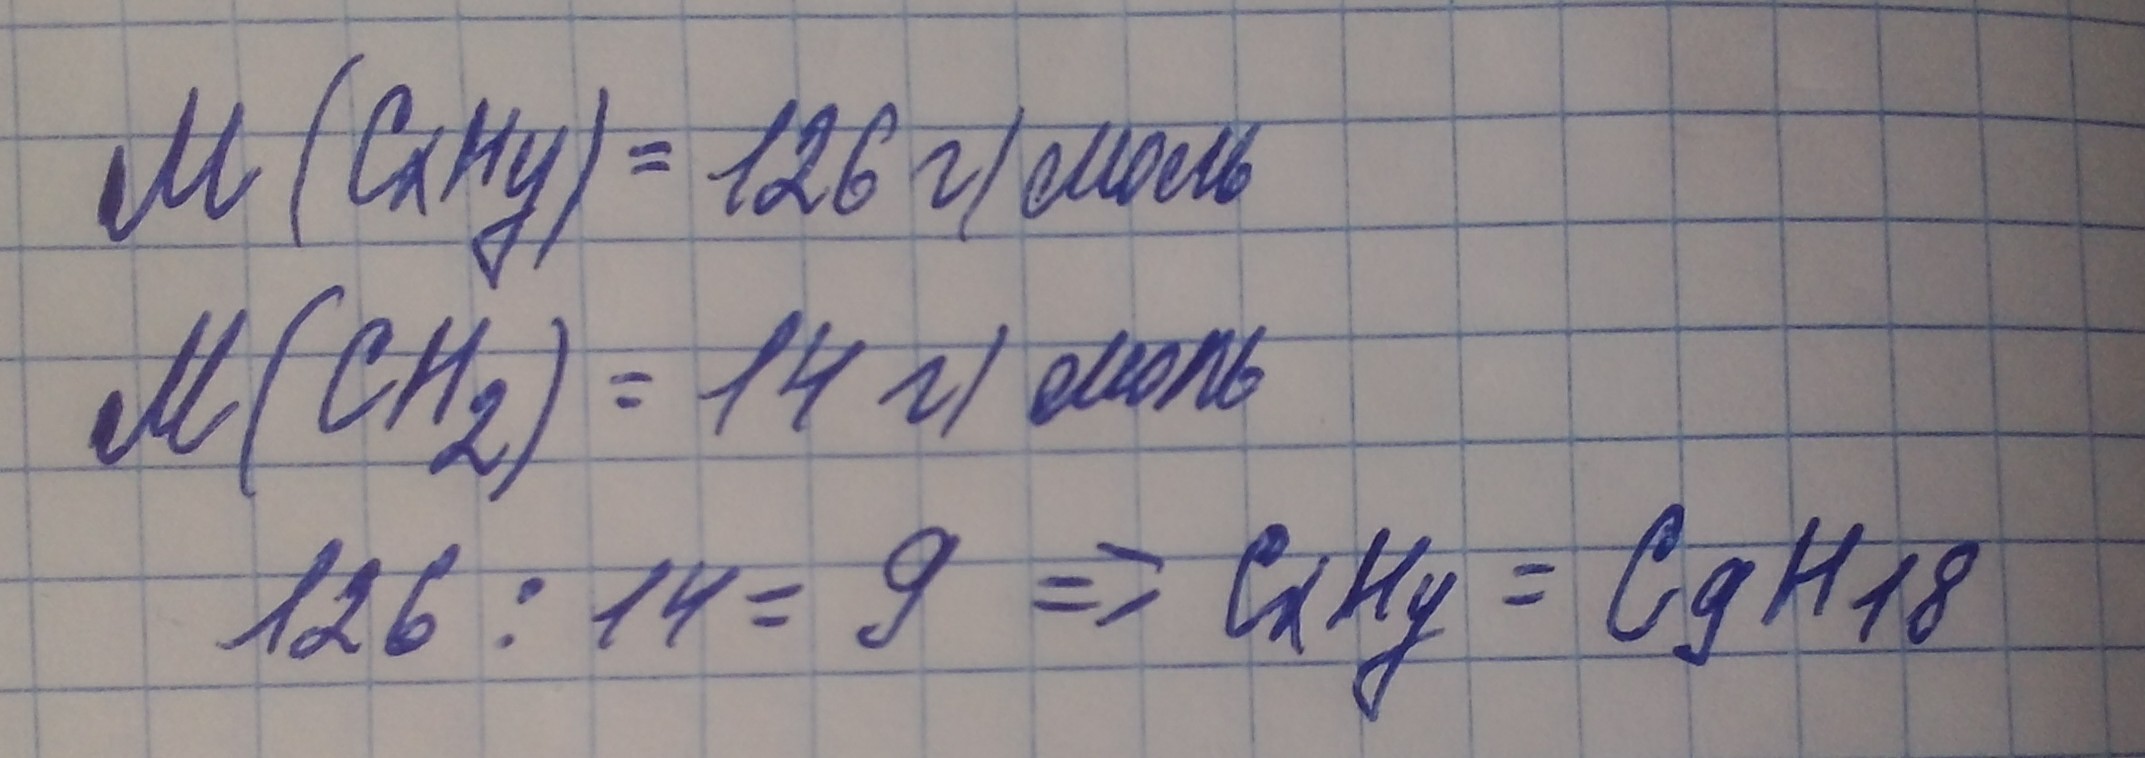 M(CxHy) = 126 г/моль
M(CH2) = 14 г/моль
126 : 14 = 9 => CxHy = C9H18